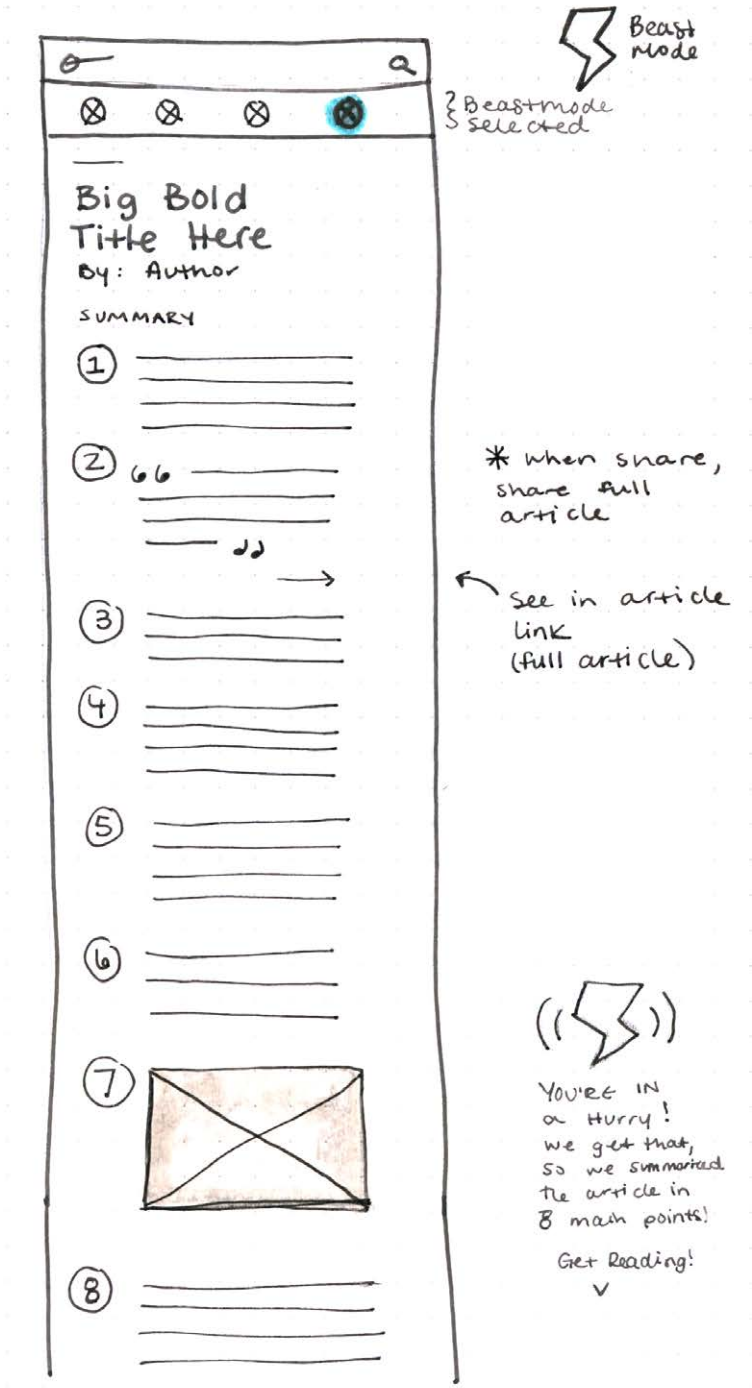 Beast
Mode
Beastmode
Selected
Big Bold
Title Here
By: Author
SUMMARY
1
2
* when share,
share full
article
see in article
link
(full article)
3
4
5
6
7
YOU'RE IN
a Hurry!
we get that,
so we summarized
the article in
8 main points!
Get Reading!
8